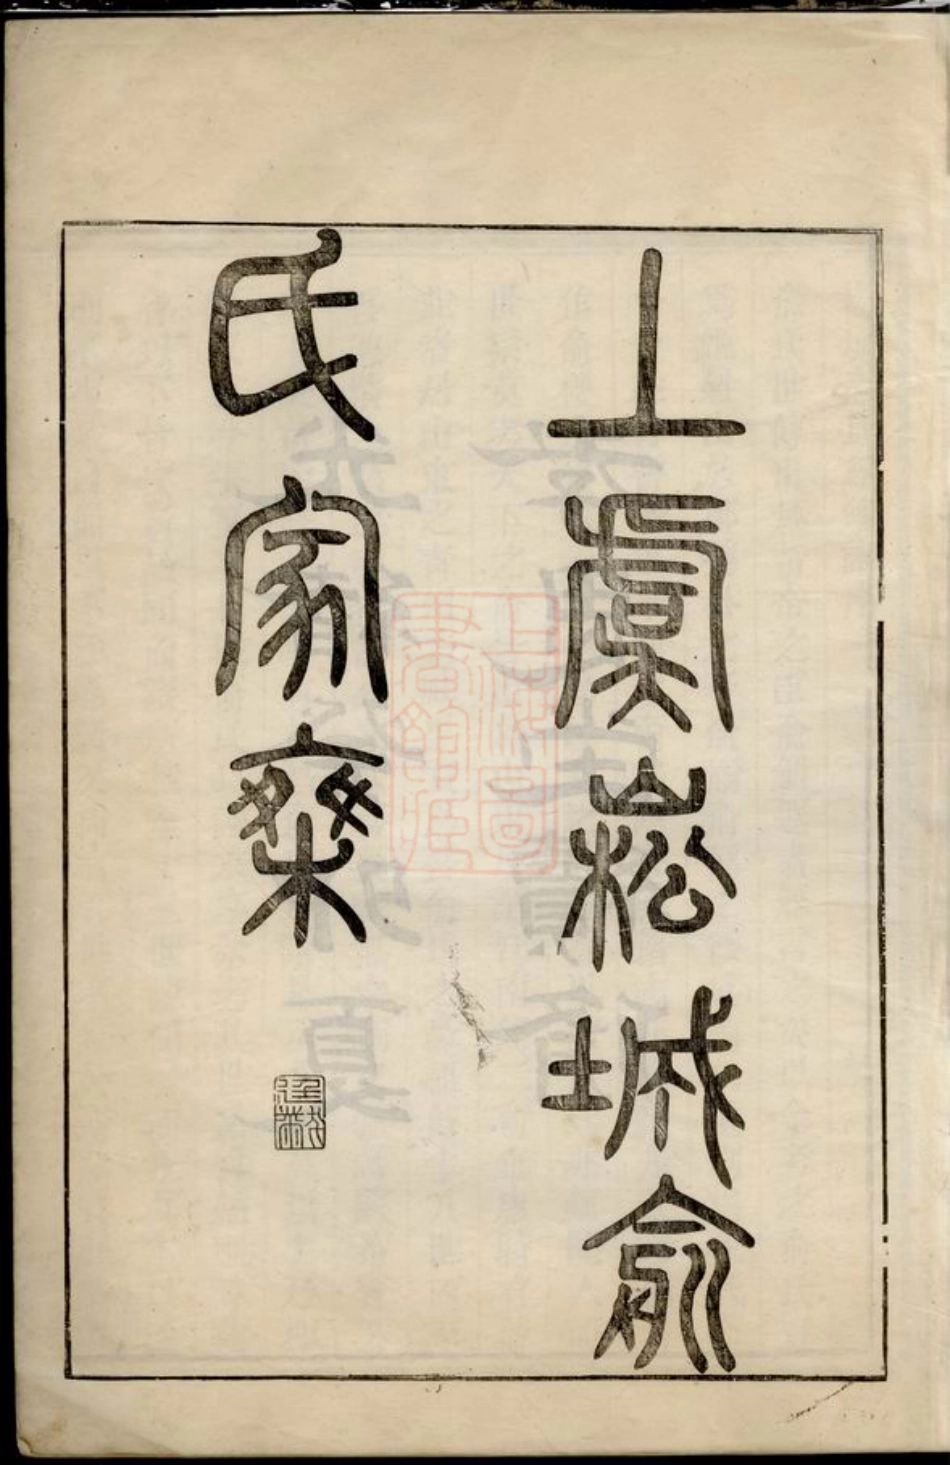 上虞崧城俞
氏家乘
上海圖
書館藏